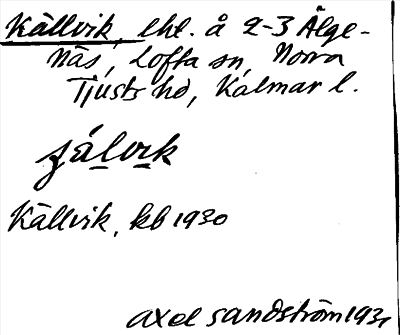 Källvik, lht. å 2-3 Älge-
näs, Lofta sn, Norra
Tjusts hd, Kalmar l.
Källvik, kb 1930
Axel Sandström 1931